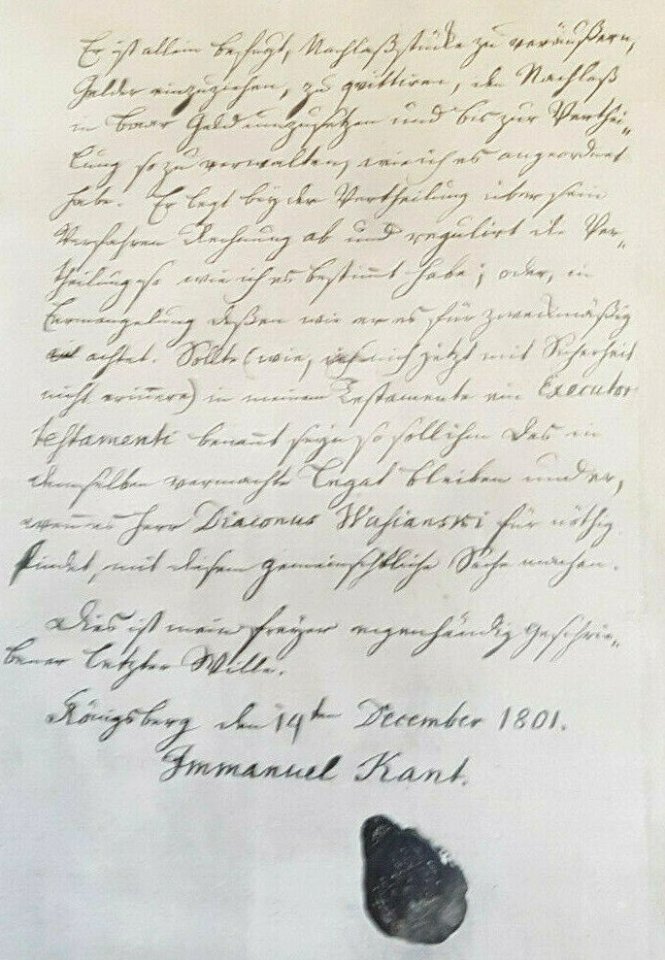 Er ist allein befugt, Nachlaßstücke zu veräußern,
Gelder einzuziehen, zu quittiren, den Nachlaß
in baar Geld umzusetzen und bis zur Verthei-
lung so zu verwalten, wie ich es angeordnet
habe. Er legt bey der Vertheilung über sein
Verfahren Rechnung ab und regulirt die Ver-
theilung so wie ich es bestimmt habe; oder, in
Ermangelung deßen wie er es für zweckmäßig
achtet. Sollte (wie, ich mich jetzt mit Sicherheit
nicht erinnere) in meinem Testamente ein Executor
testamenti benannt seyn so soll ihm das in
demselben vermachte Legat bleiben und er,
wenn es Herr Diaconus Wasianski für nöthig
findet, mit diesem gemeinschftliche Sache machen.
Dies ist mein freyer eigenhändig geschrie-
bener letzter Wille.
Königsberg den 14ten December 1801.
Immanuel Kant.